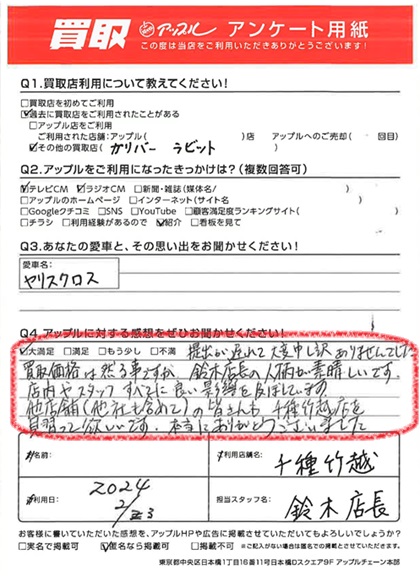 買取 アップル アンケート用紙
この度は当店をご利用いただきありがとうございます!
Q1.買取店利用について教えてください!
□買取店を初めてご利用
☑過去に買取店をご利用されたことがある
□アップル店をご利用
ご利用された店舗:アップル( )店 アップルへのご売却( 回目)
☑その他の買取店( ガリバー ラビット )
Q2.アップルをご利用になったきっかけは?(複数回答可)
☑テレビCM ☑ラジオCM □新聞・雑誌(媒体名/ )
□アップルのホームページ □インターネット(サイト名 )
□Googleクチコミ □SNS □YouTube □顧客満足度ランキングサイト( )
□チラシ □利用経験があるので ☑紹介 □看板を見て
Q3.あなたの愛車と、その思い出をお聞かせください!
愛車名:
ヤリスクロス
Q4.アップルに対する感想をぜひお聞かせください!
☑大満足 □満足 □もう少し □不満 提出が遅れて大変申し訳ありませんでした
買取価格は然る事ですが、鈴木店長の人柄が素晴しいです。
店内やスタッフすべてに良い影響を及ぼしています
他店舗(他社も含めて)の皆さんも千種竹越店を
見習って欲しいです。本当にありがとうございました
お名前:
ご利用店舗名:
千種竹越
ご利用日:
2024
2/23
担当スタッフ名:
鈴木店長
お客様に書いていただいた感想を、アップルHPや広告に掲載させていただいてもよろしいでしょうか?
□実名で掲載可 ☑匿名なら掲載可 □掲載不可 ※ご記入がない場合は匿名での掲載とさせていただきます。
東京都中央区日本橋1丁目16番11号日本橋Dスクエア9F アップルチェーン本部